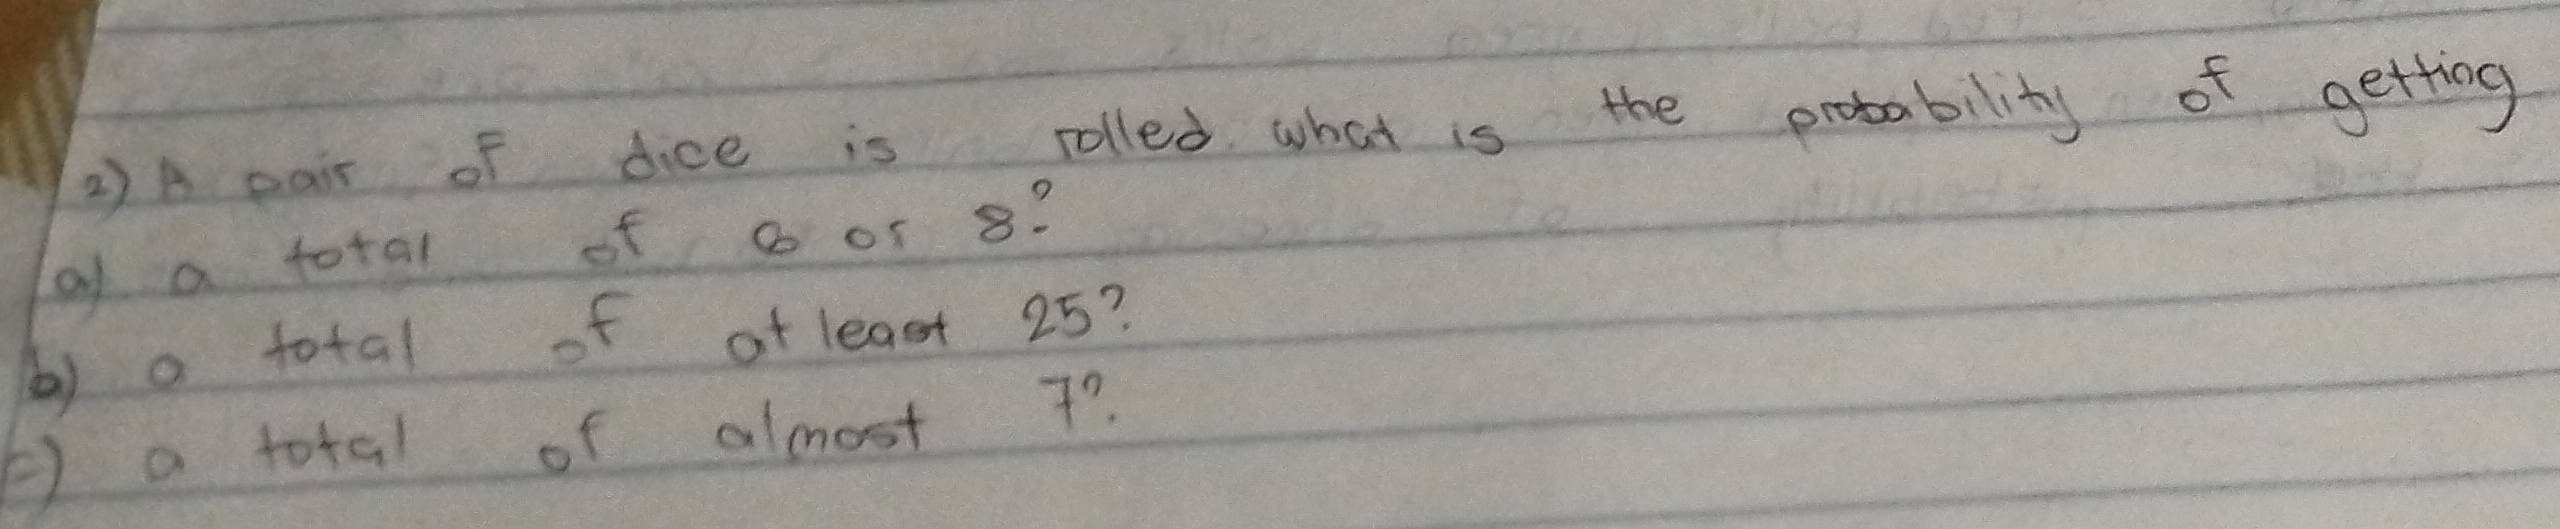 2) A pair of dice is rolled. what is the probability of getting
a) a total of 8 or 8?
b) a total of at least 25?
c) a total of almost 7?